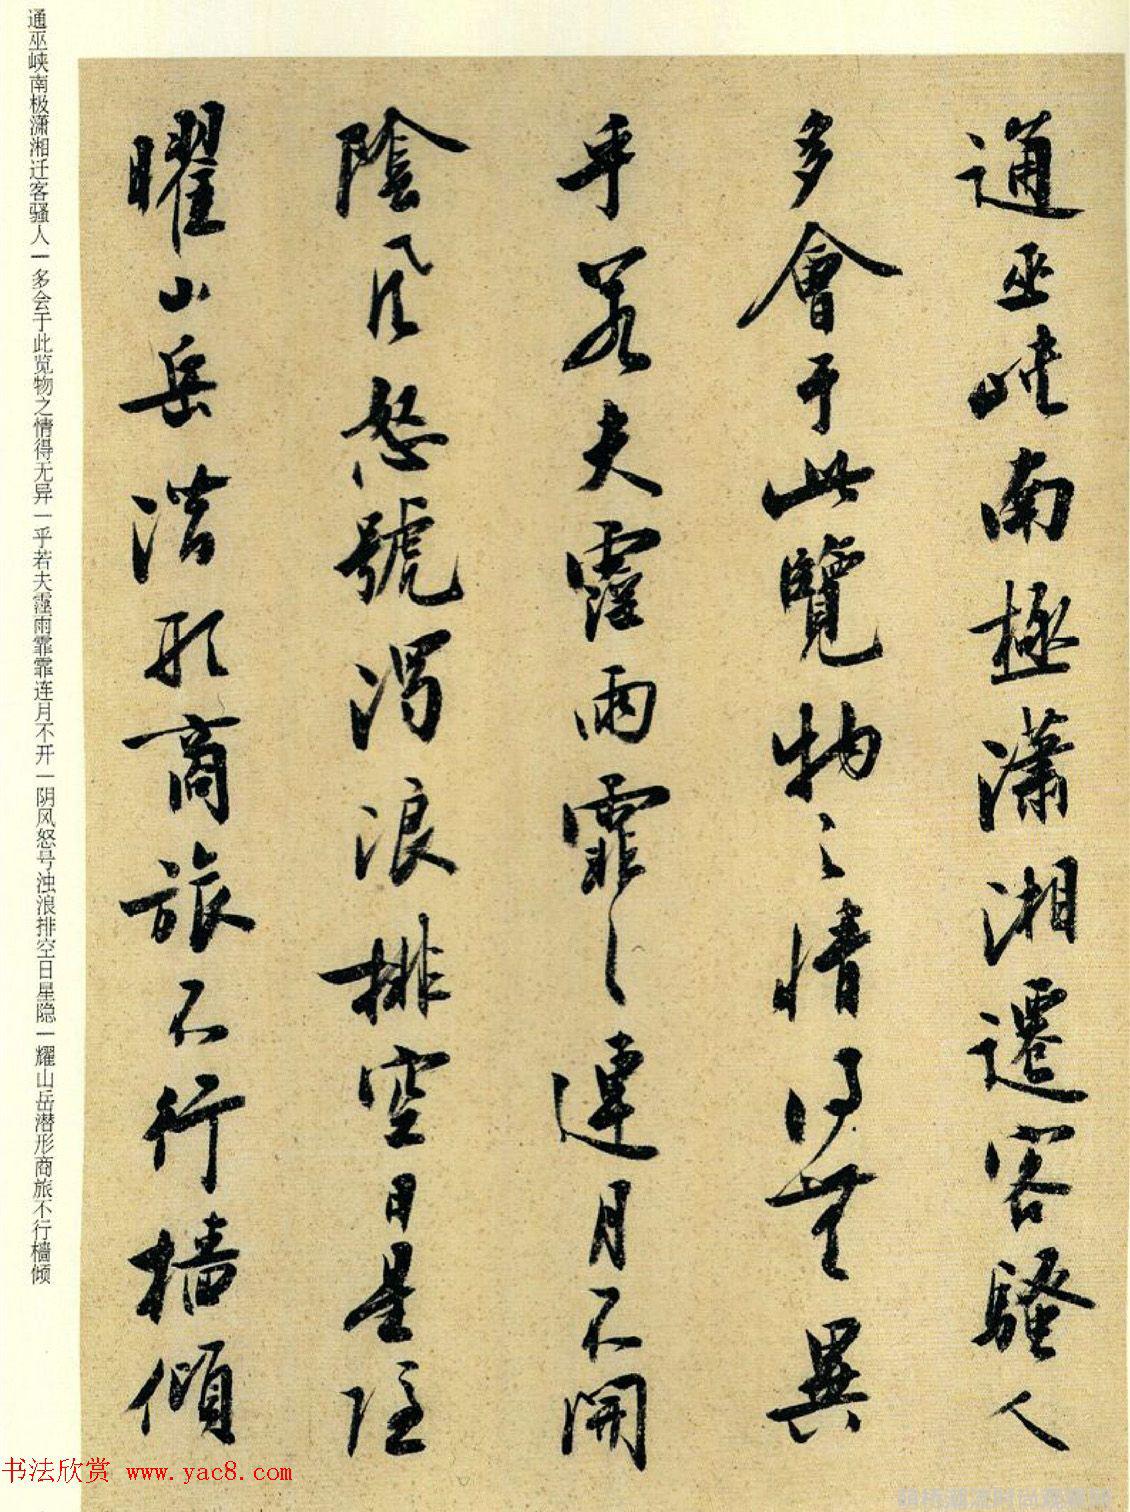 通巫峡南極瀟湘遷客騷人
多會于此覽物之情得無異
乎若夫霪雨霏〻連月不開
陰風怒號濁浪排空日星隱
曜山岳潜形商旅不行檣傾
通巫峡南极潇湘迁客骚人一多会于此览物之情得无异一乎若夫霪雨霏霏连月不开一阴风怒号浊浪排空日星隐一耀山岳潜形商旅不行樯倾
书法欣赏 www.yac8.com